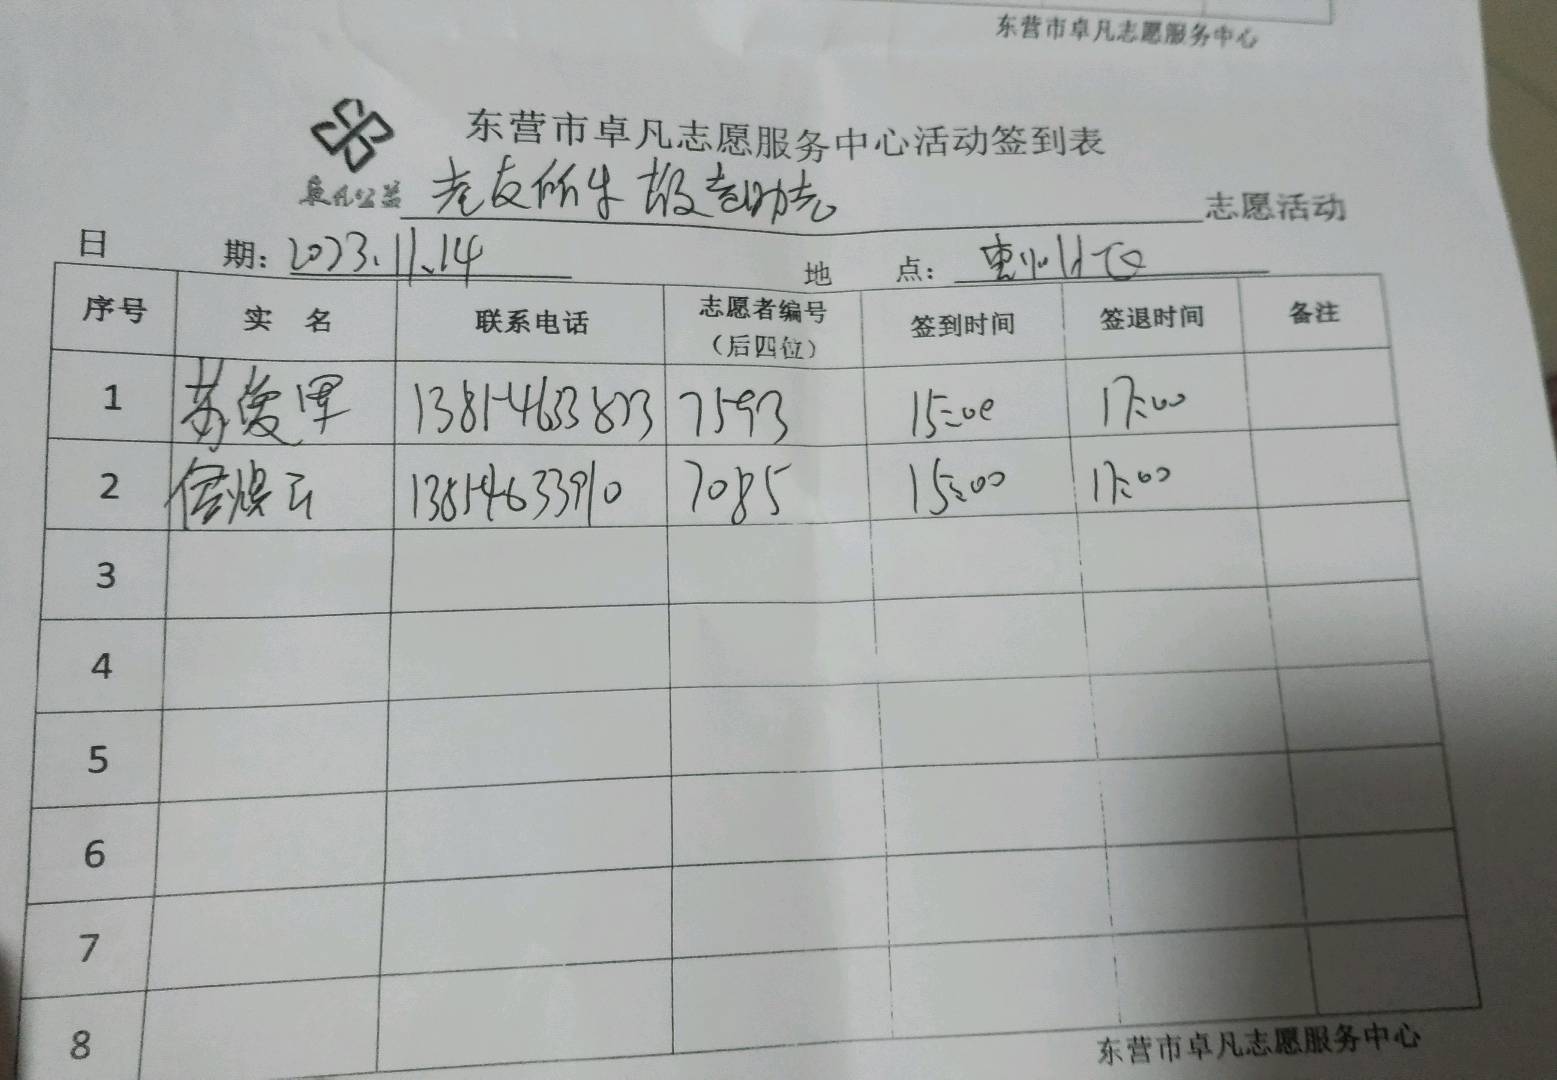 东营市卓凡志愿服务中心
东营市卓凡志愿服务中心活动签到表
卓凡公益 老友所 志愿活动
日 期: 2023.11.14 地 点:
序号 实 名 联系电话 志愿者编号(后四位) 签到时间 签退时间 备注
1 苏爱军 7593 15:00 17:00
2 13854633910 7085 15:00 17:00
3
4
5
6
7
8
东营市卓凡志愿服务中心